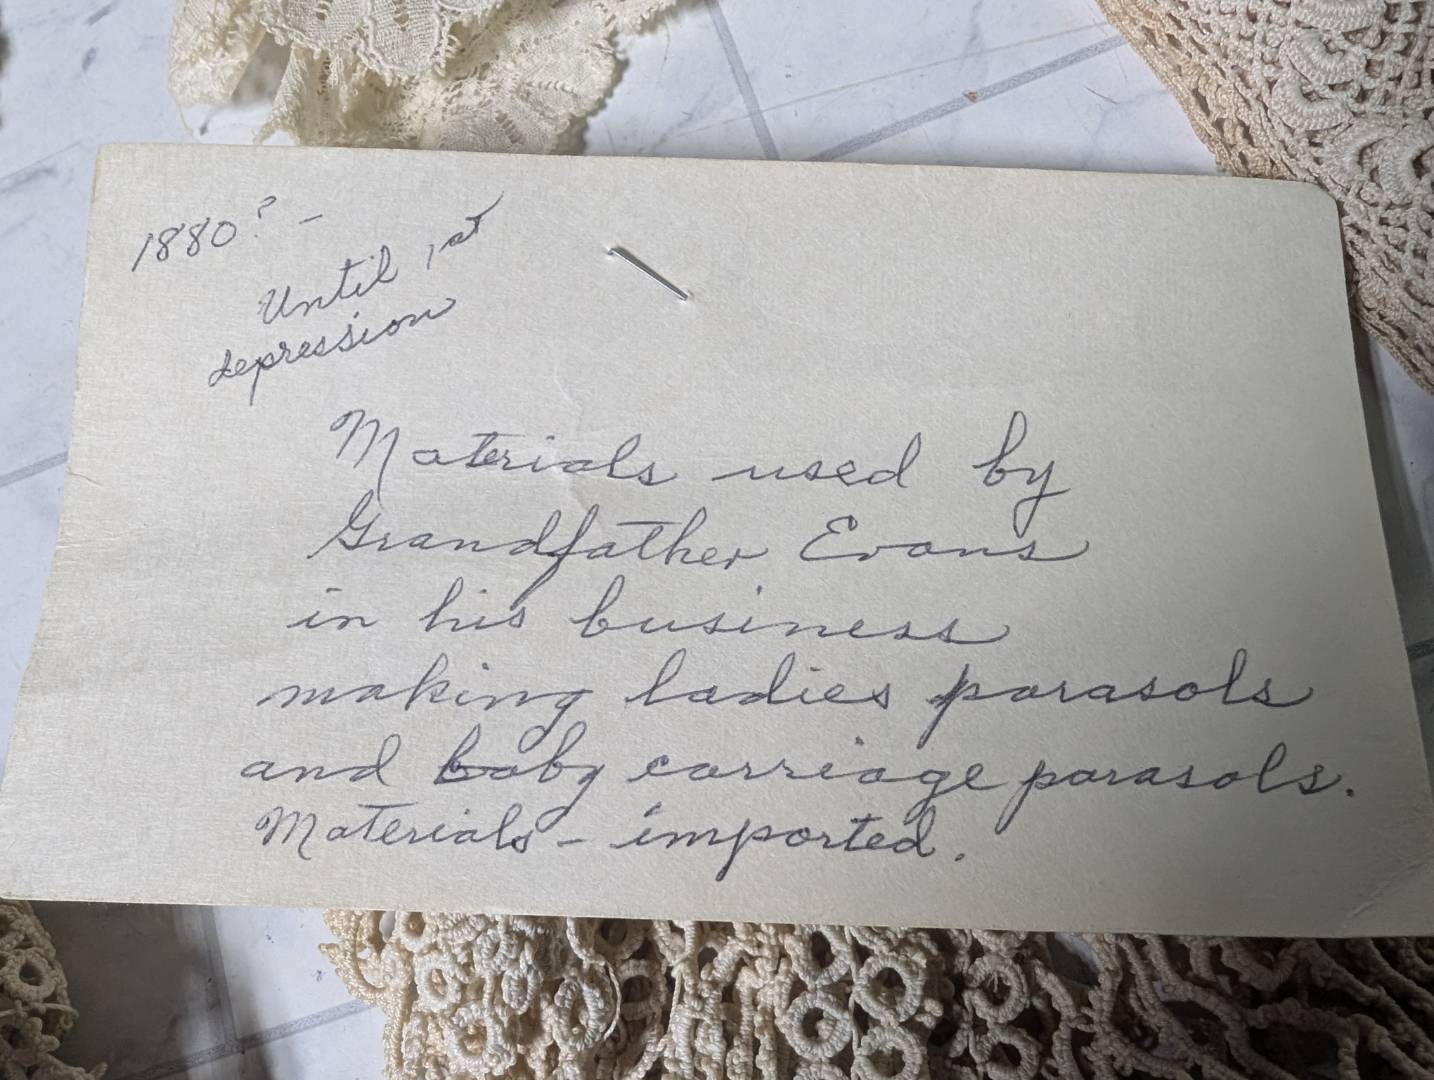 1880? -
Until 1st
depression
Materials used by
Grandfather Evans
in his business
making ladies parasols
and baby carriage parasols.
Materials - imported.